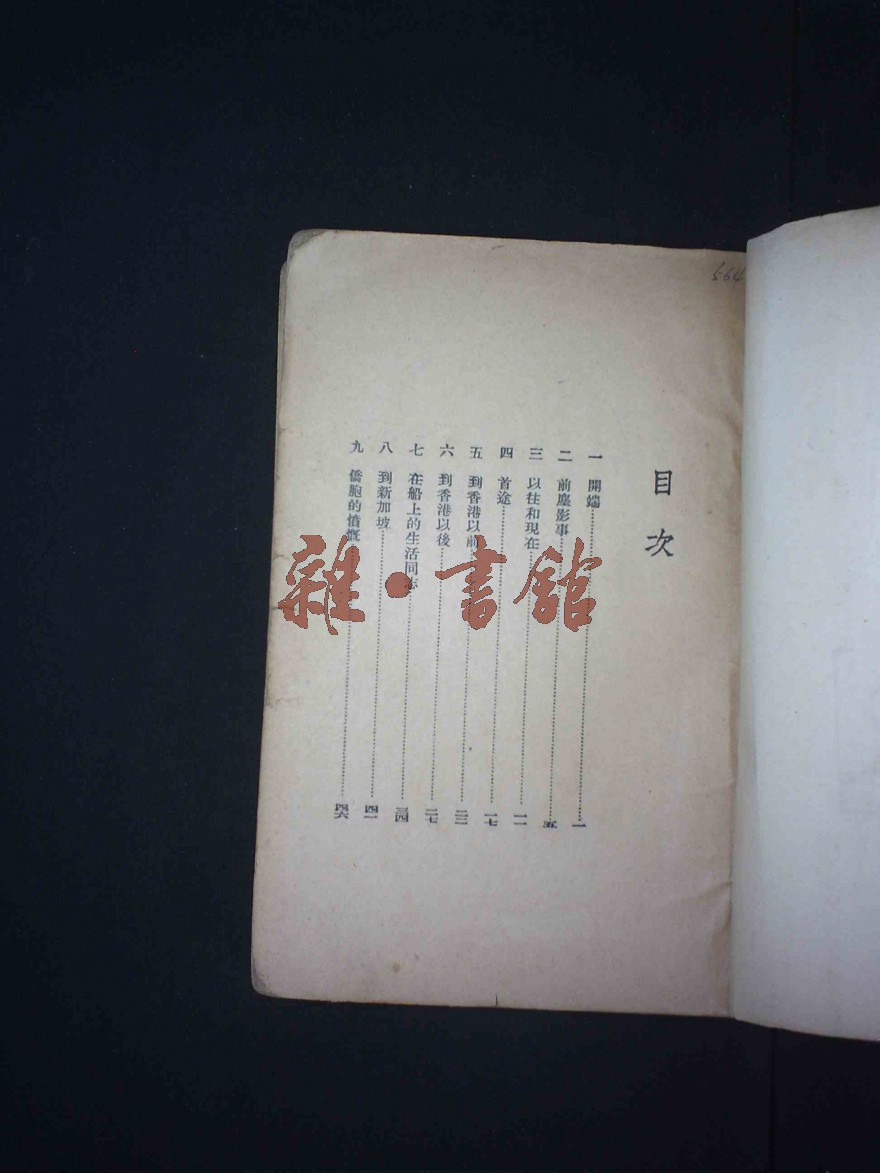 564
目次
一 開端……一
二 前塵影事……五
三 以往和現在……一一
四 首途……一七
五 到香港以前……二三
六 到香港以後……二七
七 在船上的生活同志……三四
八 到新加坡……四一
九 僑胞的憤慨……四六
雜·書館